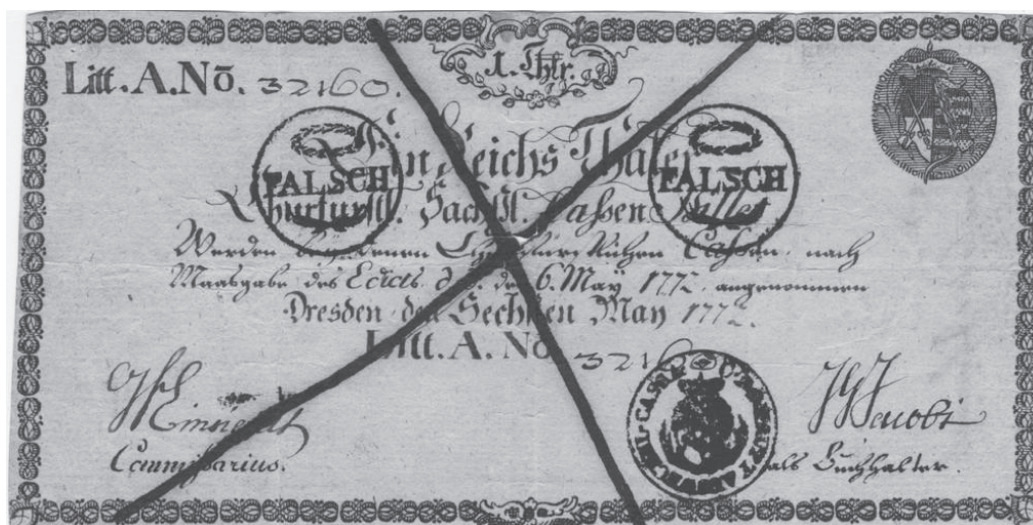 1. Thlr.
Litt. A. Nō. 32160.
Ein Reichs Thaler
FALSCH
FALSCH
Churfürstl. Sächßl. Caßen Billet
Werden bey denen Churfürstlichen Caßen, nach
Maasgabe des Edicts d. d. den 6. May 1772. angenommen
Dresden den Sechsten May 1772.
Litt. A. No 32160
Commißarius.
als Buchhalter.